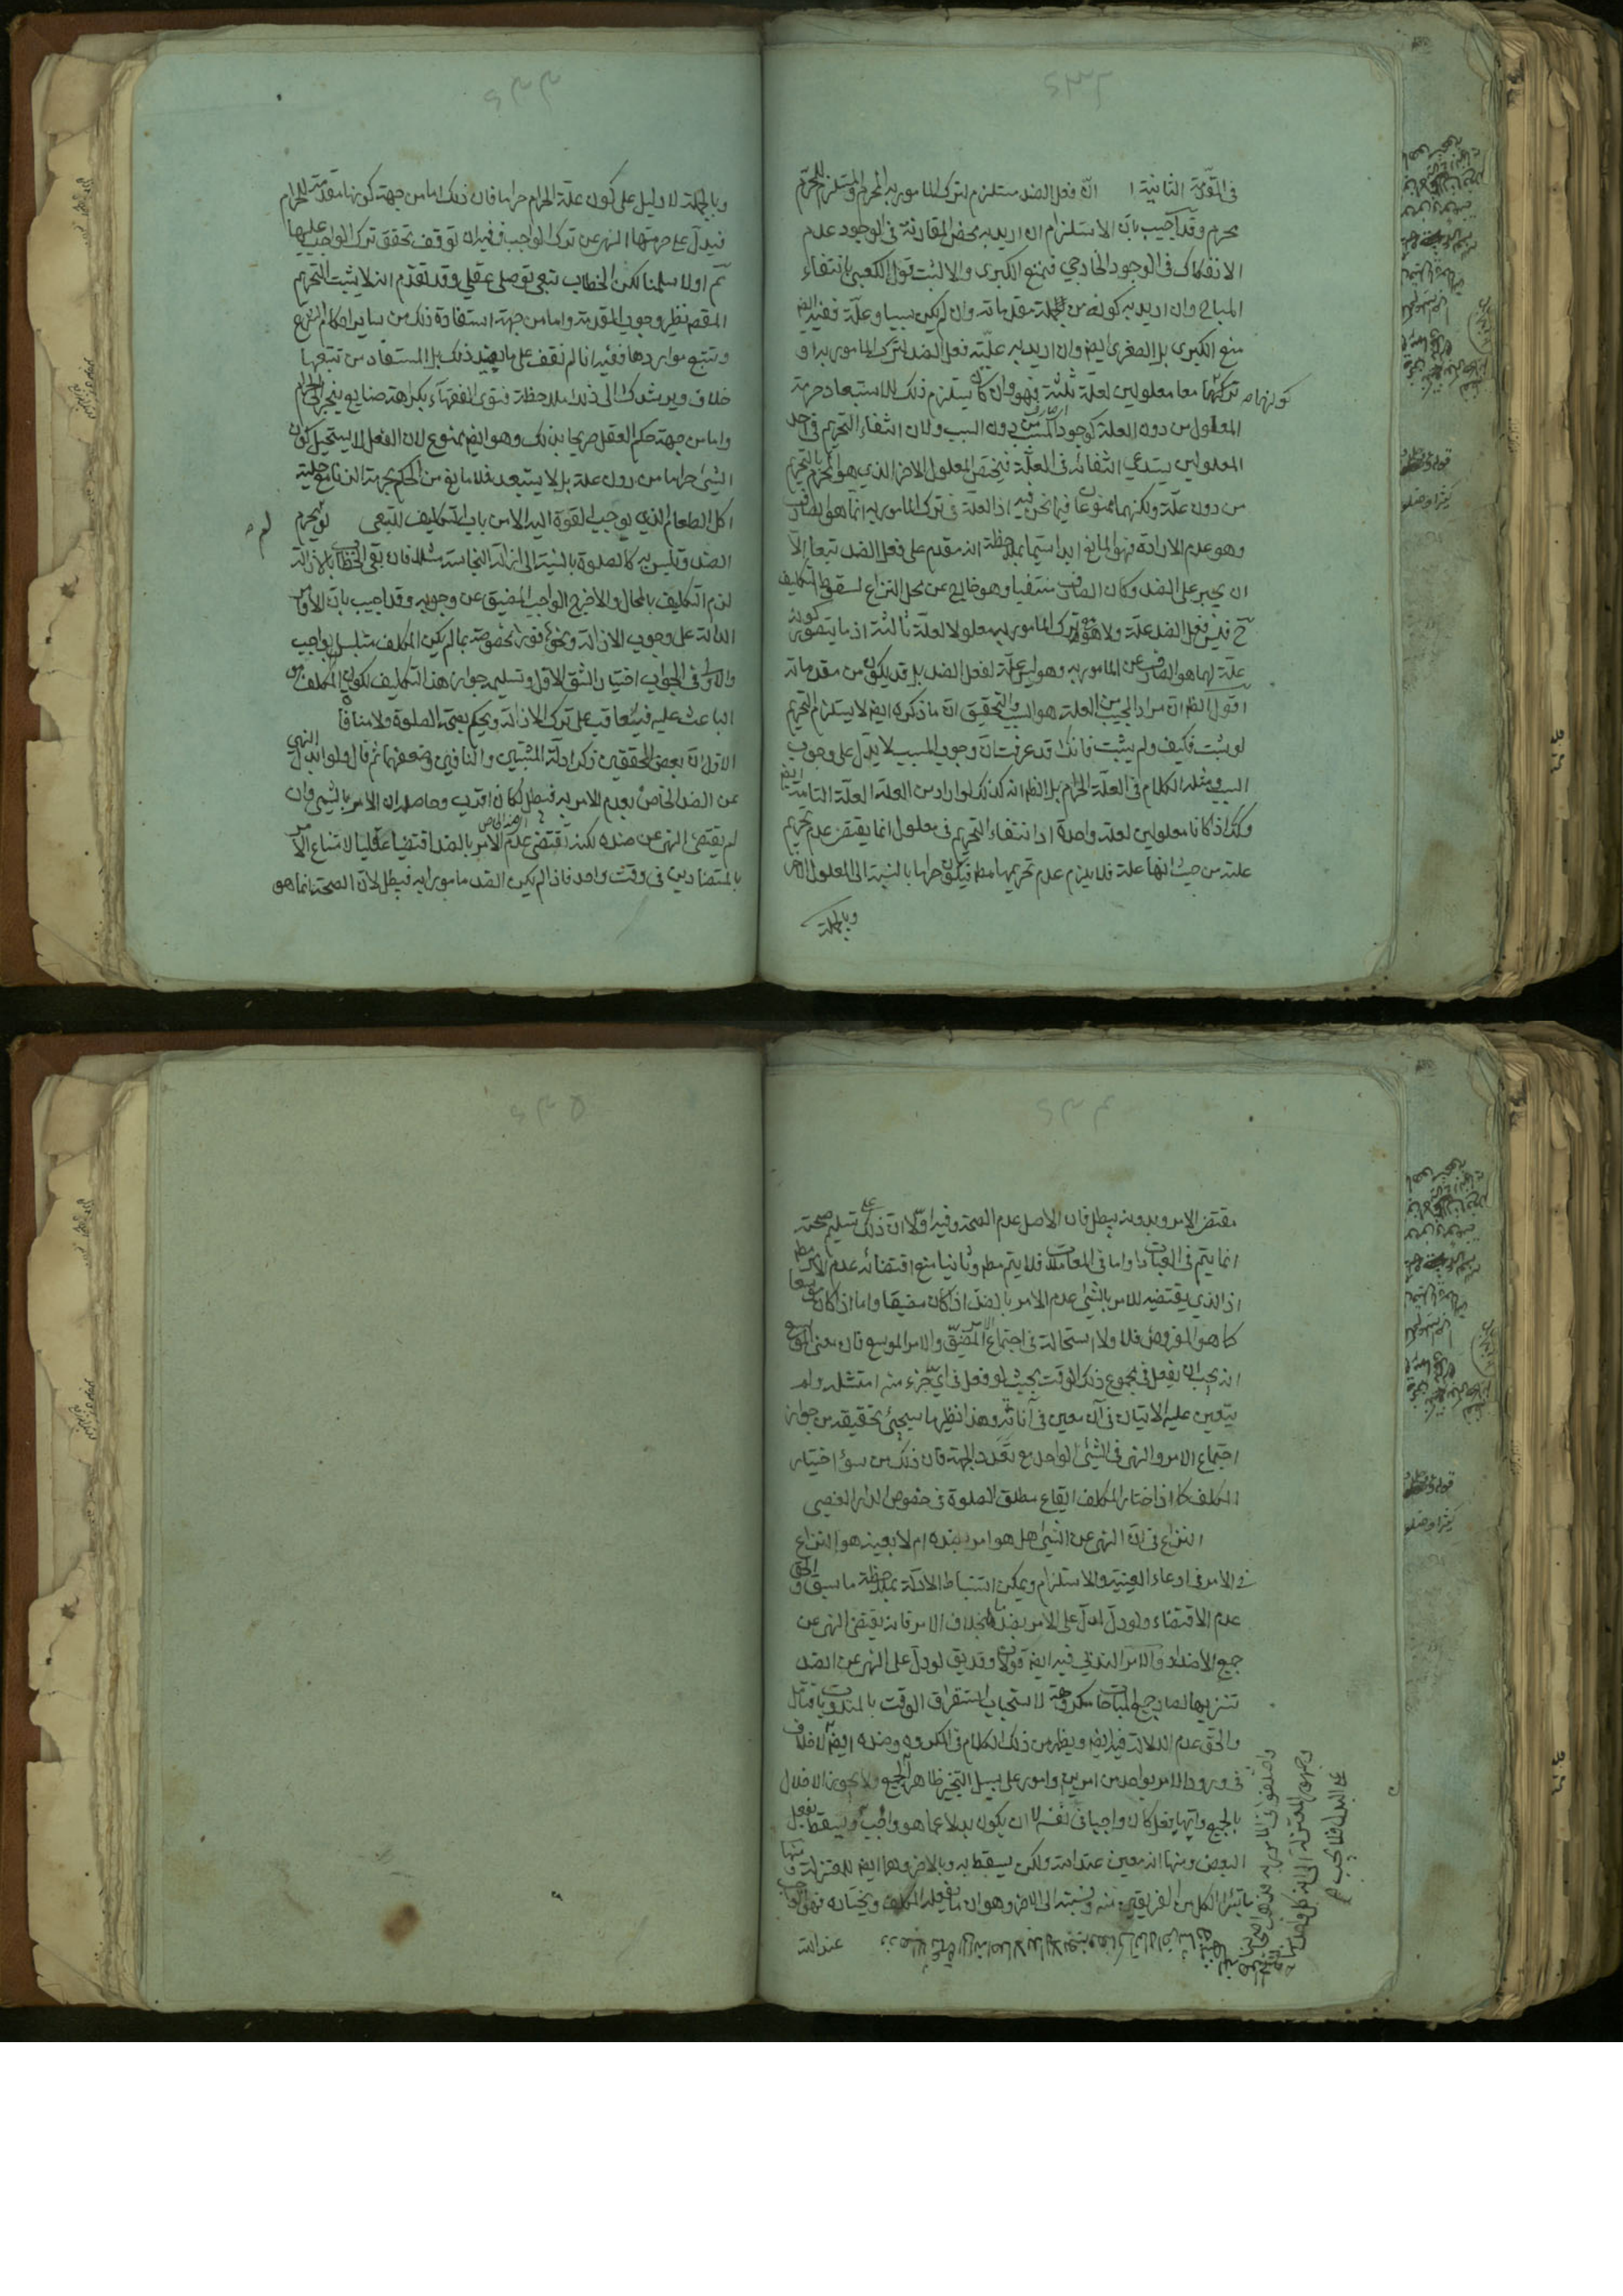 ۶۳۲
في المقدمة الثانية ان فعل الضد مستلزم لترك المامور به المحرم والمستلزم للمحرم
محرم وقد اجيب بان الاستلزام ان اريد به محض المقارنة في الوجود وعدم
الانفكاك في الوجود الخارجي فيمنع الكبرى والا لثبت قول الكعبي بانتفاء
المباح وان اريد به كونه من جملة مقدماته وان لم يكن سببا وعلة ففيه ايض
منع الكبرى بل الصغرى ايض وان اريد به علية فعل الضد لترك المامور به او
كونهما معا معلولين لعلة ثالثة فهو وان كان يستلزم ذلك لاستبعاد حرمة
المعلول من دون العلة كوجود المسبب من دون السبب ولان انتفاء التحريم في احد
المعلولين يستدعي انتفائه في العلة فيختص المعلول الاخر الذي هو المحرم بالتحريم
من دون علة ولكنهما ممنوعان فيما نحن فيه اذ العلة في ترك المامور به انما هو الصارف
وهو عدم الارادة فهو المانع ابدا سيما بملاحظة انه مقدم على فعل الضد تبعا الا
ان يجبر على الضد وكان الصارف منتفيا وهو خارج عن محل النزاع لسقوط التكليف
ح فليس فعل الضد علة ولا هو وترك المامور به معلولا لعلة ثالثة اذ ما يتصور كونه
علة لهما هو الصارف عن المامور به وهو ليس علة لفعل الضد بل قد يكون من مقدماته
اقول الظ ان مراد المجيب من العلة هو السبب والتحقيق ان ما ذكره ايض لا يستلزم التحريم
لو ثبت فكيف ولم يثبت فانك قد عرفت ان وجوب المسبب لا يدل على وجوب
السبب ومثله الكلام في العلة الحرام بل الظ انه كذلك لو اراد من العلة العلة التامة ايض
وكذا اذا كانا معلولين لعلة واحدة اذ انتفاء التحريم في معلول انما يقتضي عدم تحريم
علته من حيث انها علته فلا يلزم عدم تحريمها مط فيكون حراما بالنسبة الى المعلول الاخر
وبالجملة
۶۳۳
وبالجملة لا دليل على كون علة الحرام حراما فان ذلك اما من جهة كونها مقدمة للحرام
فيدل على حرمتها النهي عن ترك الواجب ففيه ان توقف تحقق ترك الواجب عليها
ثم اولا سلمنا لكن الخطاب تبعي توصلي عقلي وقد تقدم انه لا يثبت التحريم
المقصد نظير وجوب المقدمة واما من جهة استفادة ذلك من ساير احكام الشرع
وتتبع مواردها ففيه انا لم نقف على ما يفيد ذلك بل المستفاد من تتبعها
خلاف ويرشدك الى ذلك ملاحظة فتوى الفقهاء بكراهة صنايع ينجر الى الحرام
واما من جهة حكم العقل صريحا بذلك وهو ايض ممنوع لان العقل لا يستحيل كون
الشئ حراما من دون علته بل لا يستبعد فلا مانع من الحكم بحرمة الزنا مع حلية
اكل الطعام الذي يوجب القوة اليه الا من باب التكليف التبعي لو لم يحرم
الضد وتلبس به كالصلوة بالنسبة الى ازالة النجاسة مثلا فان بقي الخطاب بالازالة
لزم التكليف بالمحال والا خرج الواجب المضيق عن وجوبه وقد اجيب بان الاوامر
الدالة على وجوب الازالة ونحوها فورا مخصوصة بما لم يكن المكلف متلبسا بواجب
والاولى في الجواب اختيار الشق الاول وتسليم جواز هذا التكليف لكون المكلف هو
الباعث عليه فيعاقب على ترك الازالة ويحكم بصحة الصلوة ولا منافاة
الاول ان بعض المحققين ذكر ادلة المثبتين والنافين وضعفها ثم قال ولو ابدل النهي
عن الضد الخاص بعدم الامر به فيبطل لكان اقرب وحاصله ان الامر بالشئ وان
لم يقتضي النهي عن ضده الخاص لكنه يقتضي عدم الامر بالضد اقتضاء عقليا لامتناع الامر
بالمتضادين في وقت واحد فاذا لم يكن الضد مامورا به فيبطل لان الصحة انما هو
۶۳۴
مقتضى الامر وبدونه يبطل فان الاصل عدم الصحة وفيه اولا ان ذلك على تسليم صحته
انما يتم في العبادات واما في المعاملات فلا يتم مط وثانيا منع اقتضائه عدم الامر مط
اذ الذي يقتضيه الامر بالشئ عدم الامر بالضد اذا كان مضيقا واما اذا كان موسعا
كما هو المفروض فلا ولا استحالة في اجتماع الامر المضيق والامر الموسع فان معنى الموسع
انه يجب ان يفعل في مجموع ذلك الوقت بحيث لو فعل في اي جزء منه امتثل ولم
يتعين عليه الاتيان في آن معين في آناته وهذا نظير ما سيجئ تحقيقه من جواز
اجتماع الامر والنهي في الشئ الواحد مع تعدد الجهة فان ذلك من سوء اختيار
المكلف كما اذا اختار المكلف ايقاع مطلق الصلوة في خصوص الدار الغصبي
النزاع في ان النهي عن الشئ هل هو امر بضده ام لا بعينه هو النزاع
في الامر في ادعاء العينية والاستلزام ويمكن استنباط الادلة بملاحظة ما سبق والحق
عدم الاقتضاء ولو دل لدل على الامر بضد ما بخلاف الامر فانه يقتضي النهي عن
جميع الاضداد والامر الندبي فيه ايض قولان وقد يق لو دل على النهي عن الضد
تنزيها لصار جميع المباحات مكروهة لاستحباب استغراق الوقت بالمندوبات فتامل
والحق عدم الدلالة فيه ايض ويظهر من ذلك الكلام في المكروه وضده ايض
في ورود الامر بواحد من امرين وامور على سبيل التخيير ظاهرا الجميع ولا يجوز الاخلال
بالجميع وايها فعل كان واجبا في نفسه لا ان يكون بدلا عما هو واجب ويسقط بفعل
البعض ومنها انه معين عند الله ولكن يسقط به وبالاخر وهما ايض للمعتزلة ومنها
ما تبرا الكل من الفريقين منه ونسبته الى الاخر وهو ان ما يفعله المكلف ويختاره فهو الواجب
عند الله
۶۳۵